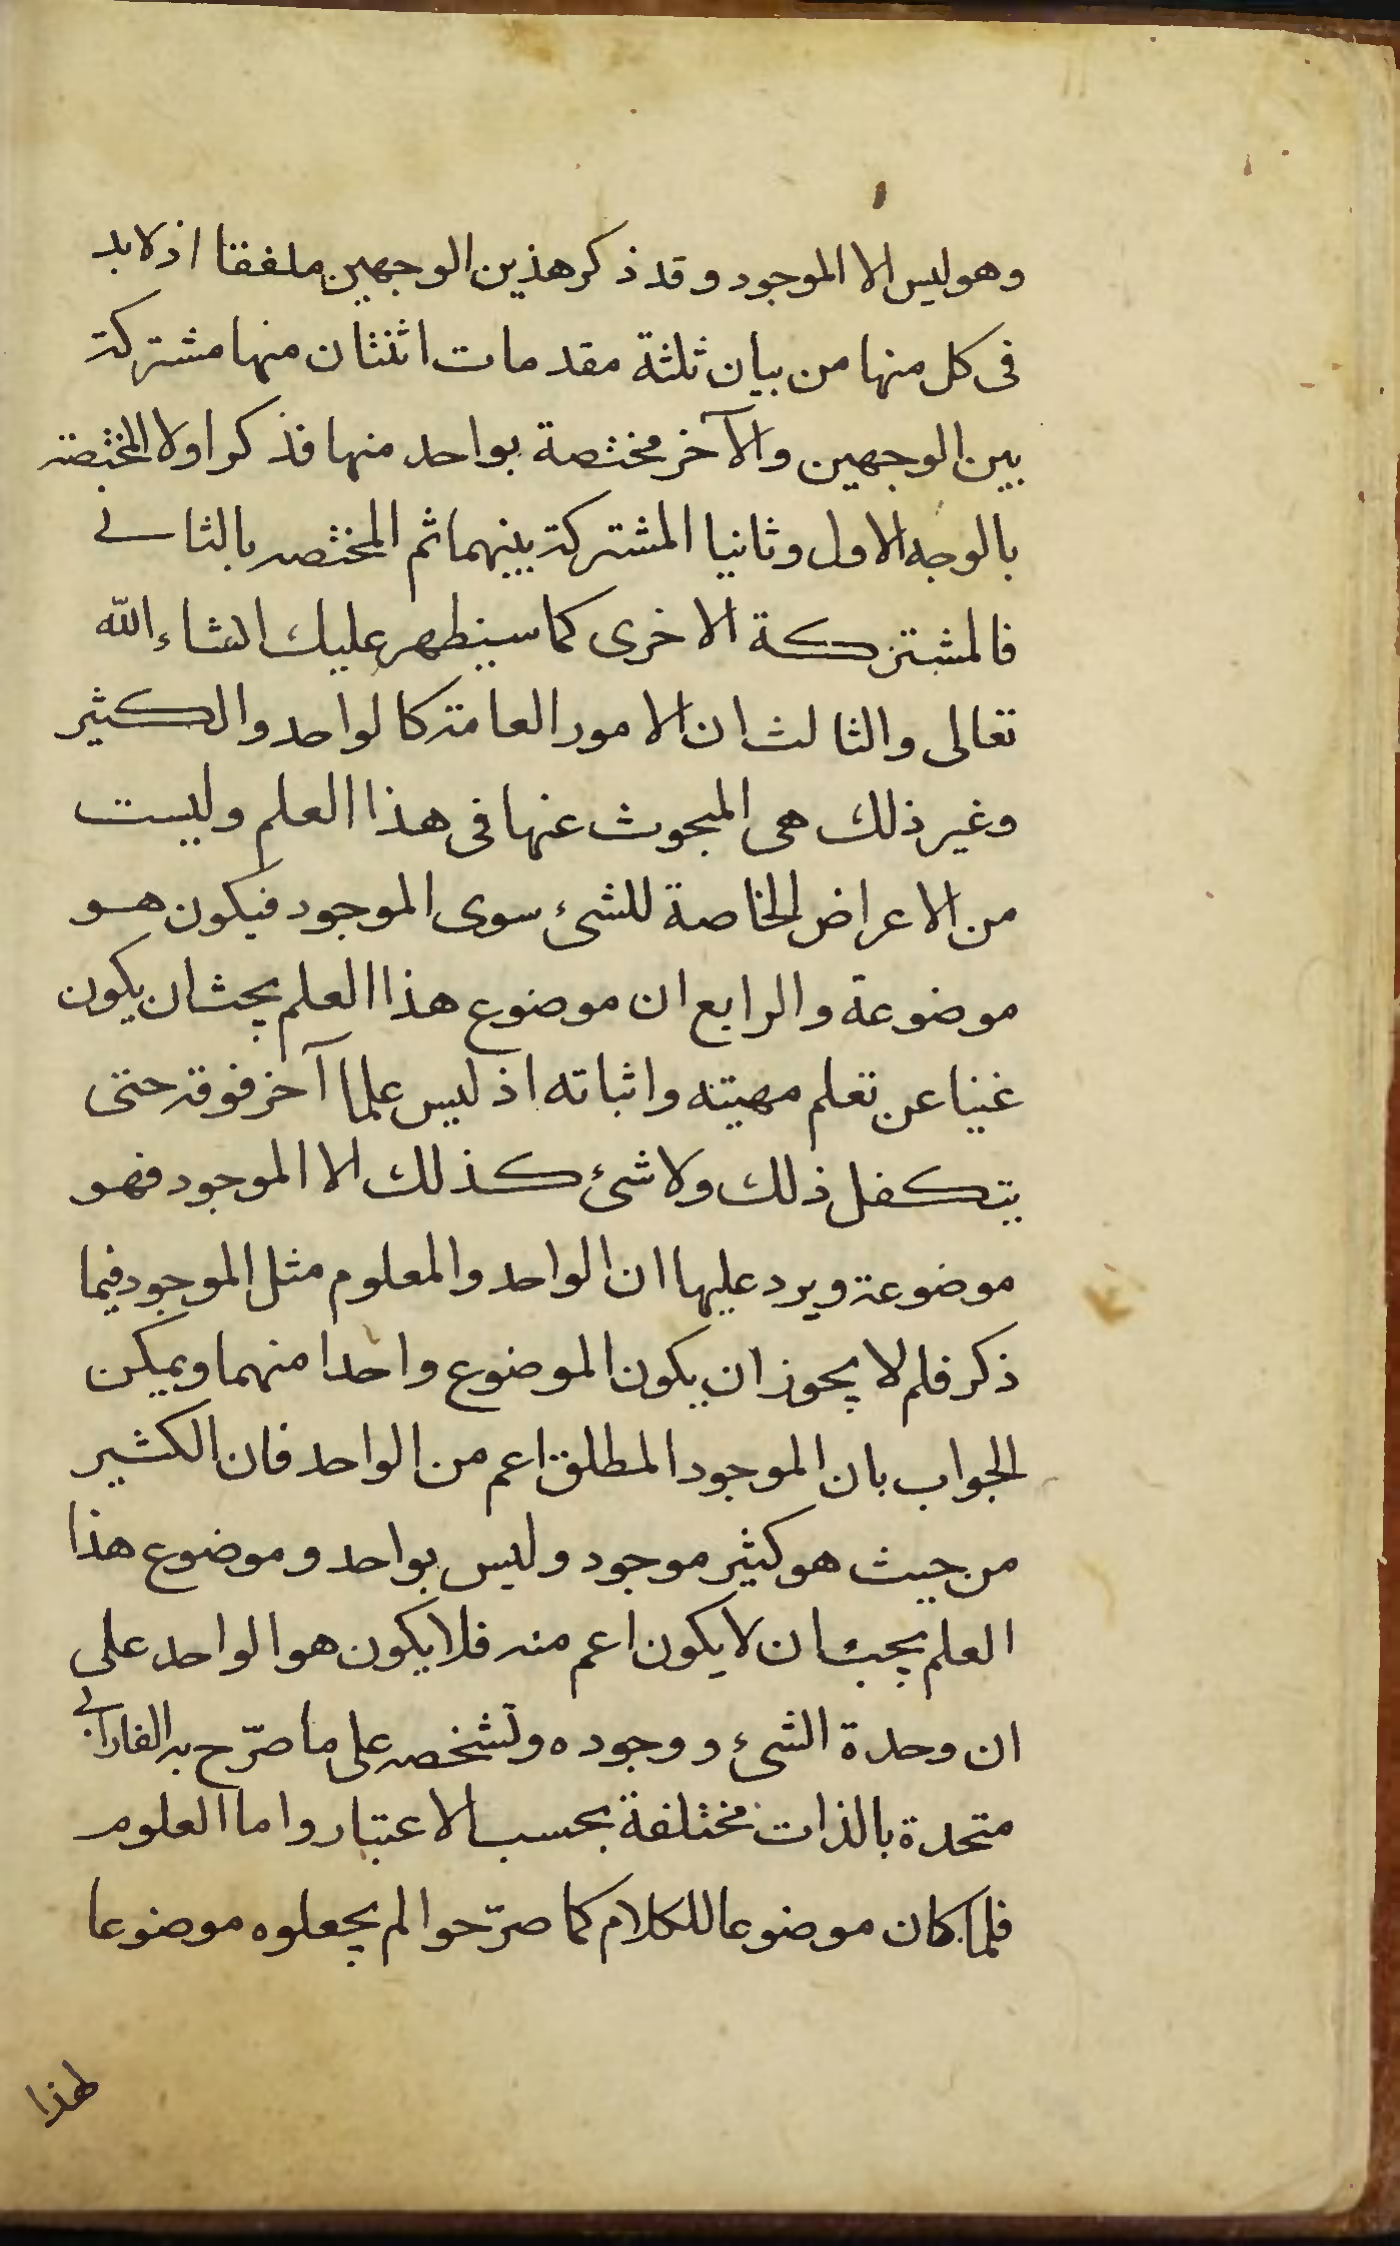 وهو ليس الا الموجود وقد ذكر هذين الوجهين ملفقا اذ لا بد
فى كل منها من بيان ثلثة مقدمات اثنتان منها مشتركة
بين الوجهين والآخر مختصة بواحد منها فذكر اولا المختصة
بالوجه الاول وثانيا المشتركة بينهما ثم المختصه بالثانى
فالمشتركة الاخرى كما سيظهر عليك انشاء الله
تعالى والثالث ان الامور العامة كالواحد والكثير
وغير ذلك هى المبحوث عنها فى هذا العلم وليست
من الاعراض الخاصة للشئ سوى الموجود فيكون هو
موضوعة والرابع ان موضوع هذا العلم يجب ان يكون
غنيا عن تعلم مهيته واثباته اذ ليس علما آخر فوقه حتى
يتكفل ذلك ولا شئ كذلك الا الموجود فهو
موضوعة ويرد عليها ان الواحد والمعلوم مثل الموجود فيما
ذكر فلم لا يجوز ان يكون الموضوع واحدا منهما ويمكن
الجواب بان الموجود المطلق اعم من الواحد فان الكثير
من حيث هو كثير موجود وليس بواحد وموضوع هذا
العلم يجب ان لا يكون اعم منه فلا يكون هو الواحد على
ان وحدة الشئ ووجوده وتشخصه على ما صرّح به الفارابى
متحدة بالذات مختلفة بحسب الاعتبار واما العلوم
فلما كان موضوعا للكلام كما صرّحوا لم يجعلوه موضوعا
لهذا